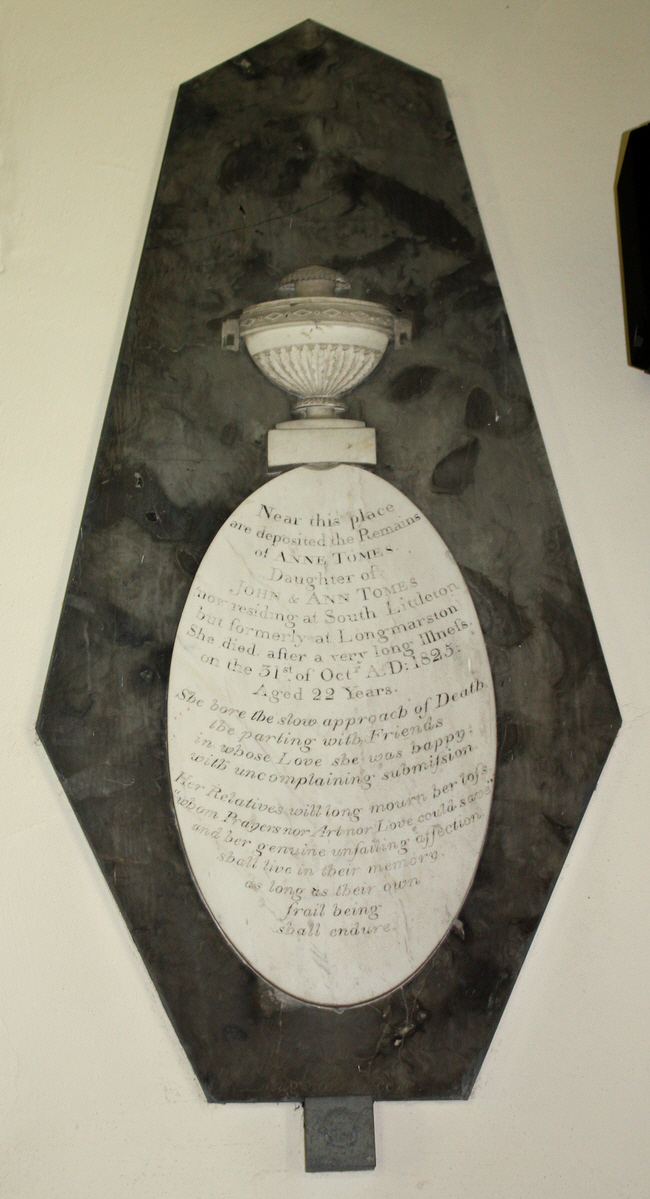 Near this place
are deposited the Remains
of ANNE TOMES
Daughter of
JOHN & ANN TOMES
now residing at South Littleton
but formerly at Longmarston
She died, after a very long Illneſs,
on the 31st. of Octr. A:D: 1825:
Aged 22 Years.
She bore the slow approach of Death
the parting with Friends
in whose Love she was happy:
with uncomplaining submiſsion
Her Relatives will long mourn her loſs
"whom Prayers nor Art nor Love could save"
and her genuine unfailing affection
shall live in their memory.
as long as their own
frail being
shall endure.